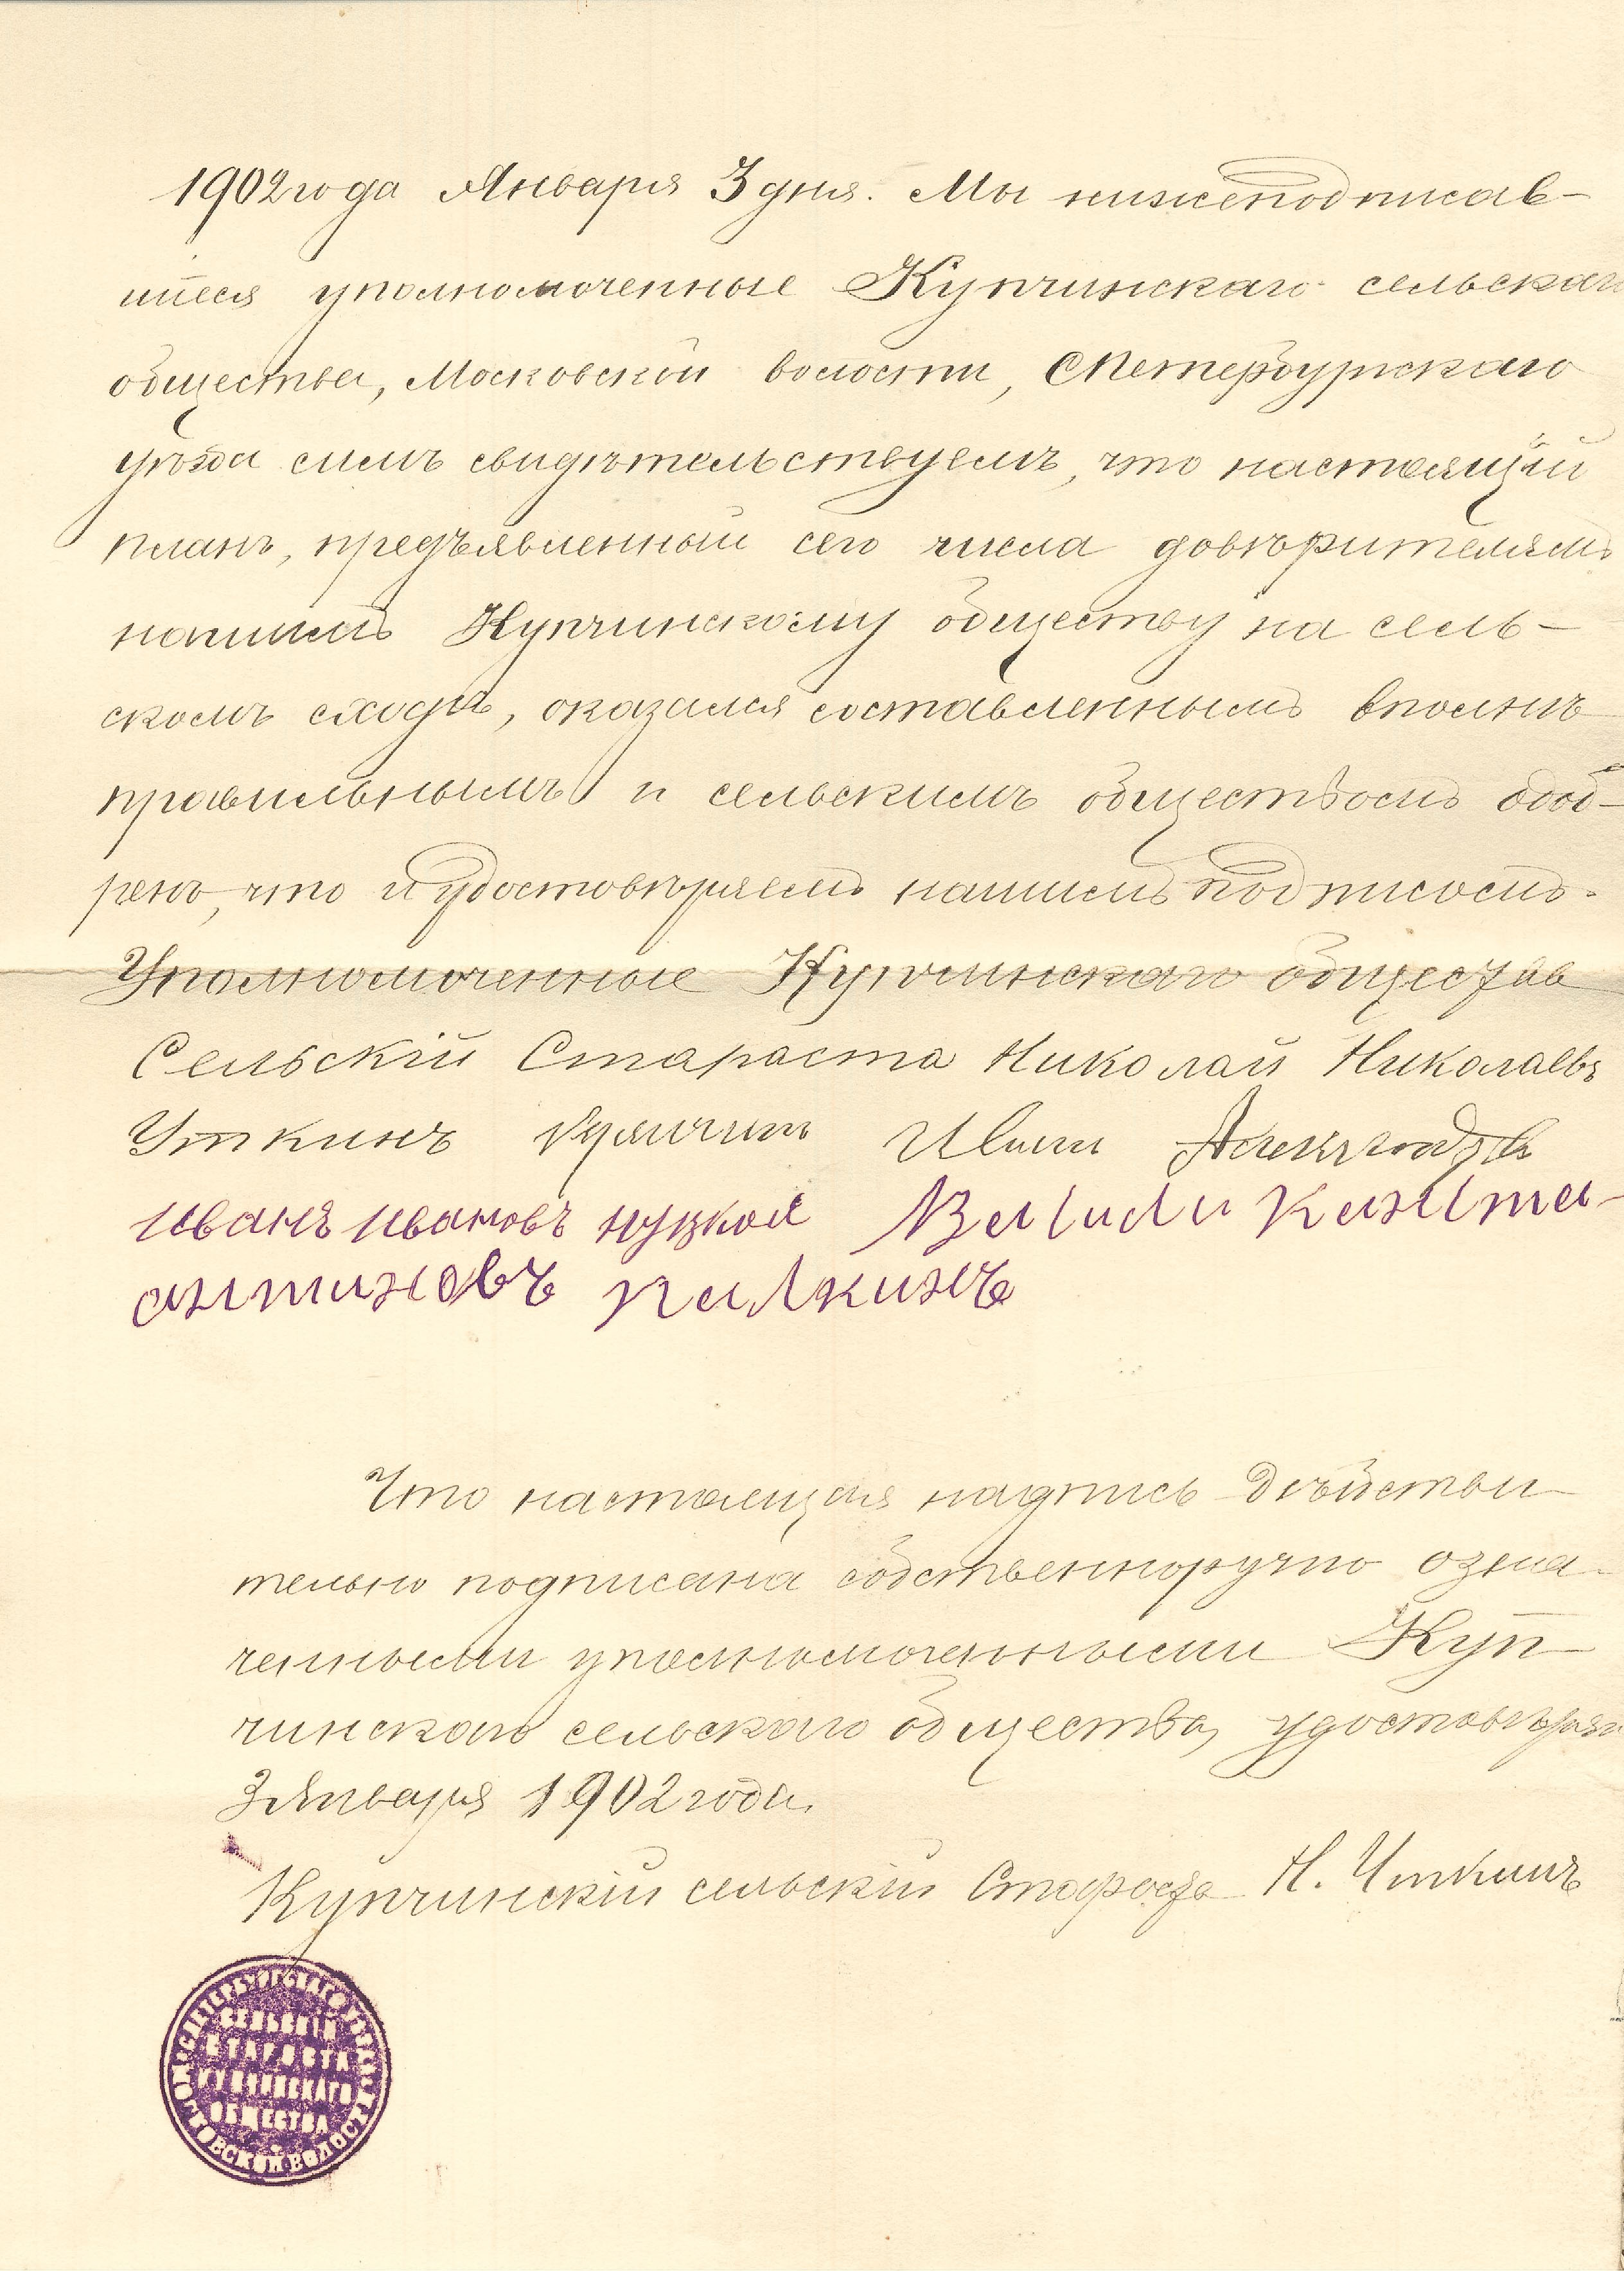 1902 года Января 3 дня. Мы нижеподписав-
шіеся уполномоченные Купчинскаго сельскаго
общества, Московской волости, СПетербургскаго
уѣзда симъ свидѣтельствуемъ, что настоящій
планъ, предъявленный сего числа довѣрителямъ
нашимъ Купчинскому обществу на сель-
скомъ сходѣ, оказался составленнымъ вполнѣ
правильнымъ и сельскимъ обществомъ одоб-
ренъ, что и удостовѣряемъ нашимъ подписомъ.
Уполномоченные Купчинскаго общества
Сельскій Стараста Николай Николаевъ
Уткинъ Иванъ
Иванъ Ивановъ Василй Канста-
антиновъ Палкинъ
Что настоящая надпись дѣйстви-
тельно подписана собственноручно озна-
ченными уполномоченными Куп-
чинскаго сельскаго общества, удостовѣряю
3 Января 1902 года.
Купчинскій сельскій Староста Н. Уткинъ
С.ПЕТЕРБУРГСКАГО УѢЗДА МОСКОВСКОЙ ВОЛОСТИ
СЕЛЬСКІЙ
СТАРОСТА
КУПЧИНСКАГО
ОБЩЕСТВА